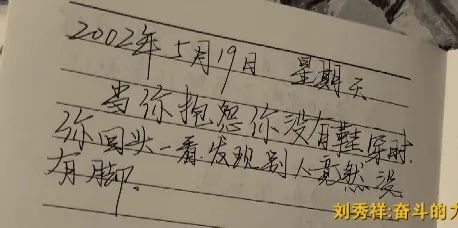 2002年5月19日 星期天
当你抱怨你没有鞋穿时.
你回头一看.发现别人竟然没
有脚.
刘秀祥:奋斗的